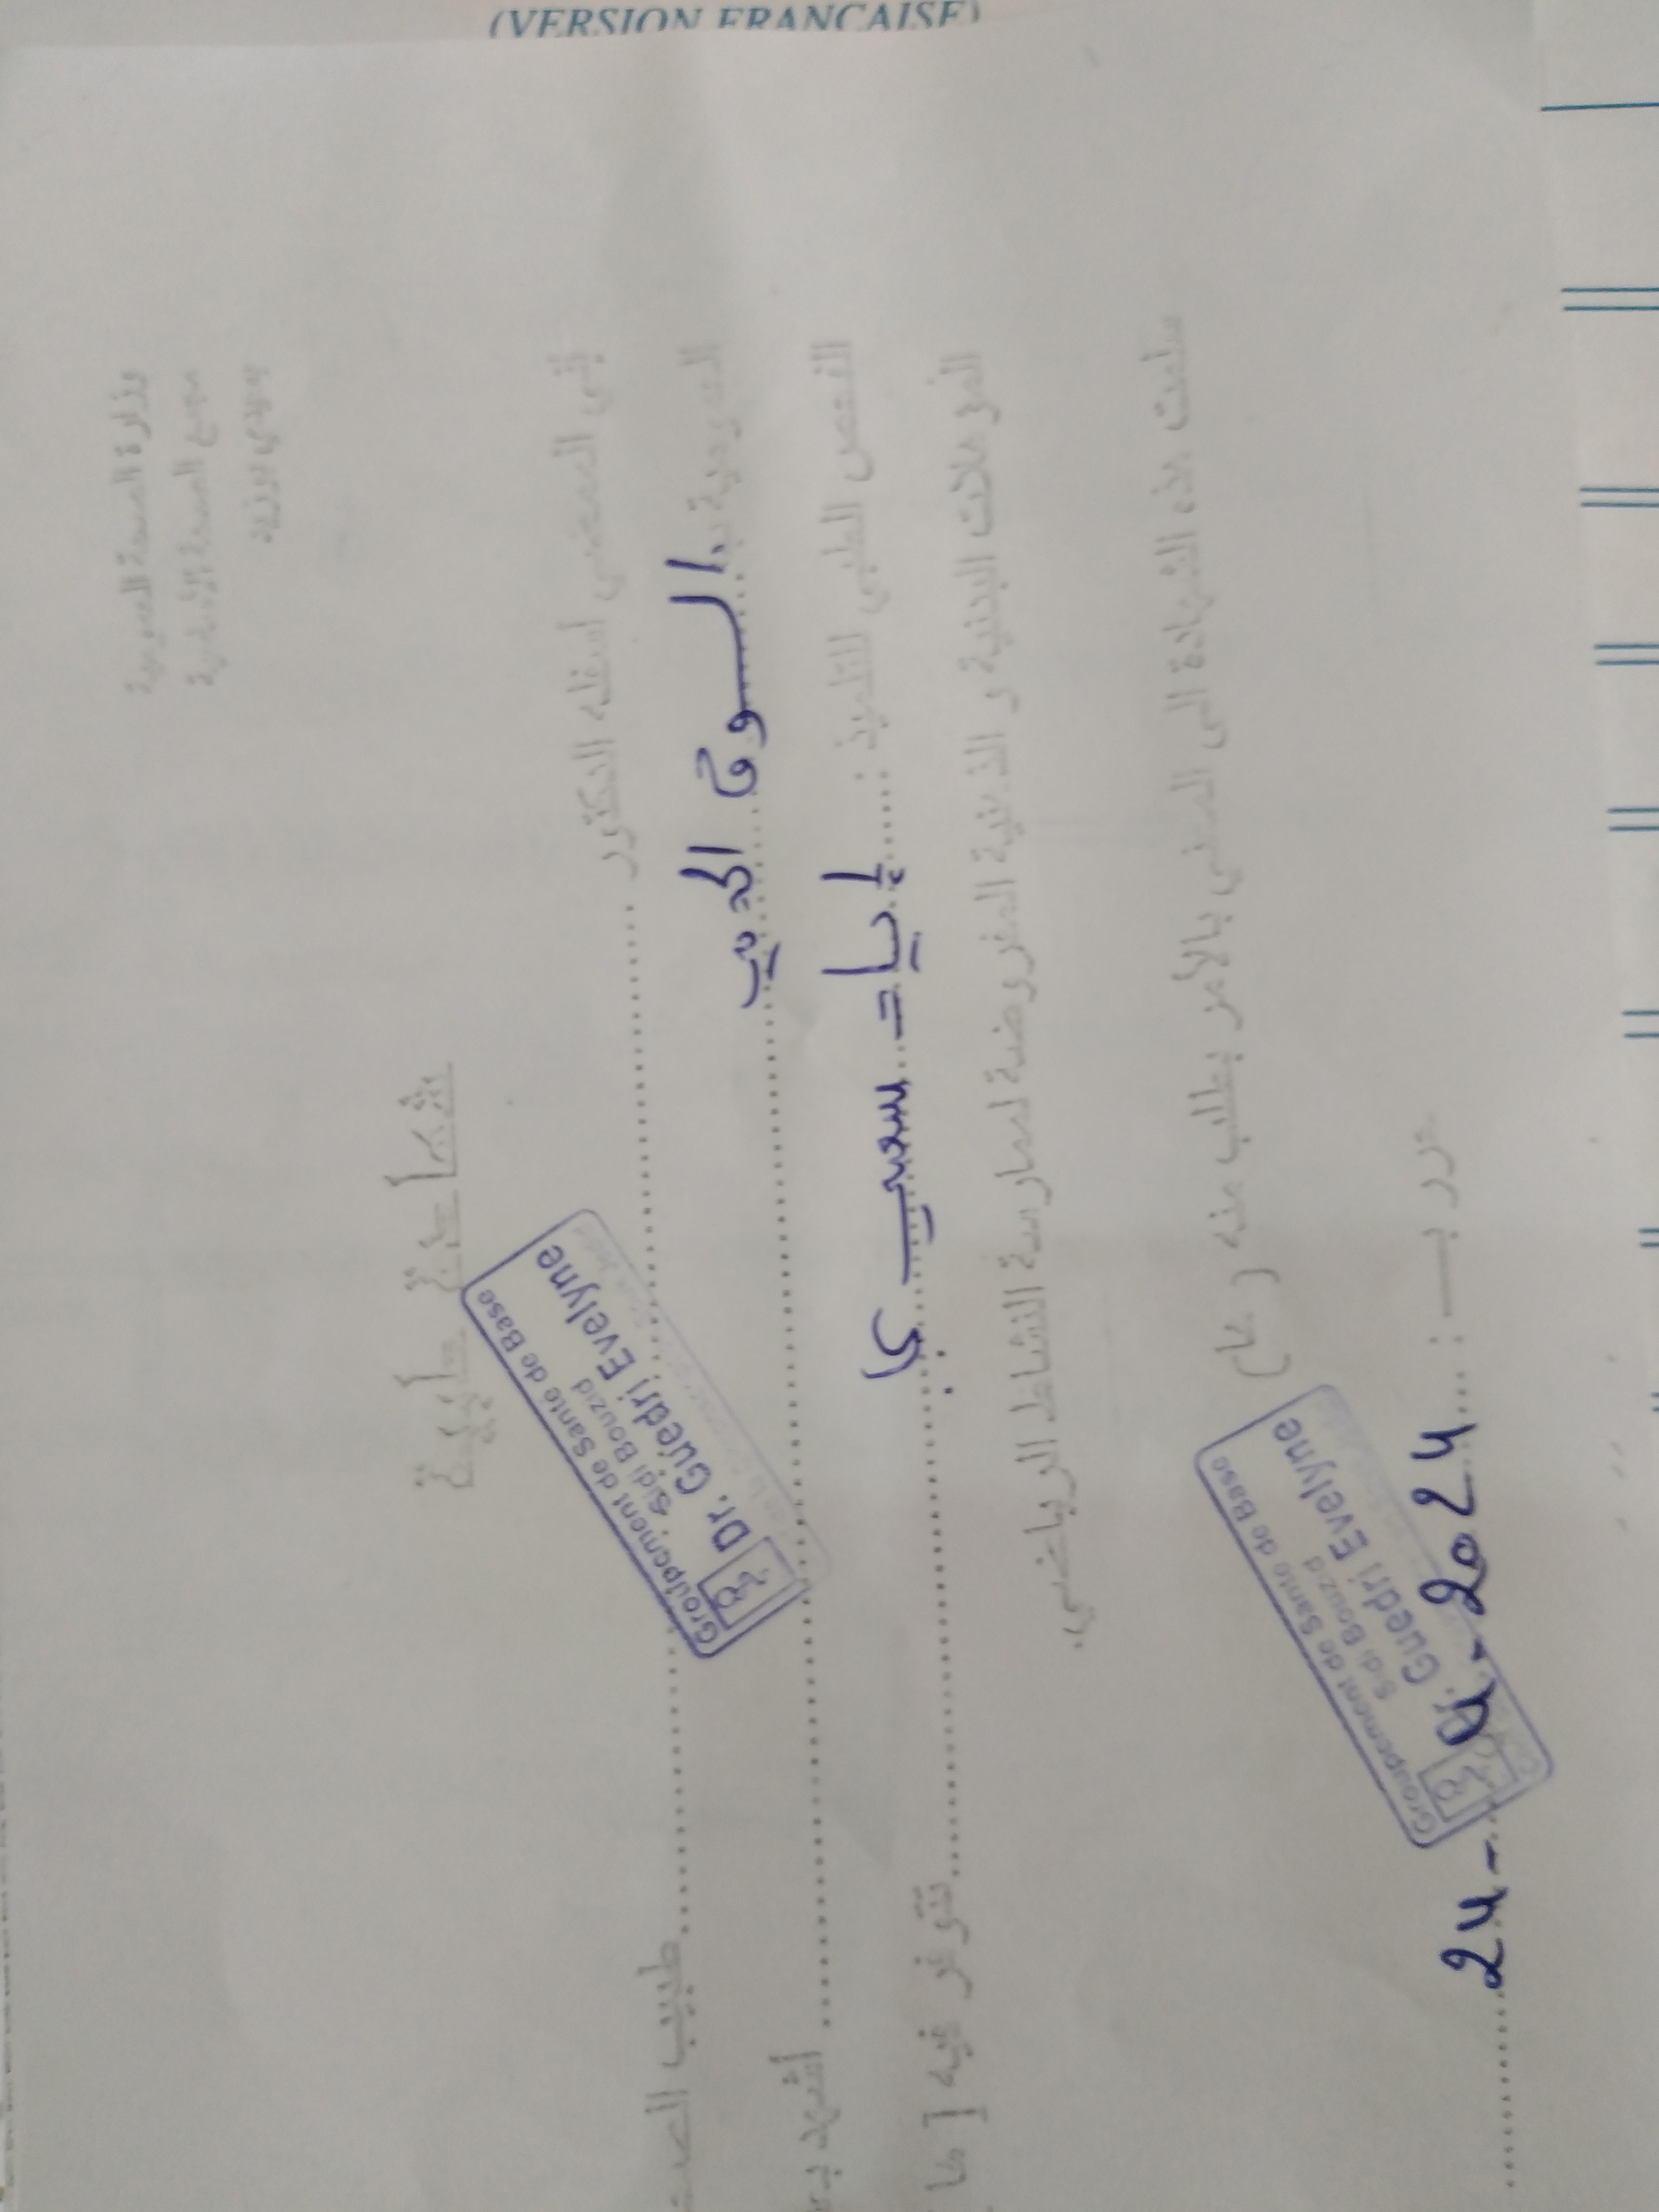 (VERSION FRANCAISE)
وزارة الصحة العمومية
مجمع الصحة الأساسية
بسيدي بوزيد
شهادة طبية
إني الممضي أسفله الدكتور ........ طبيب الصحة
Groupement de Sante de Base
Sidi Bouzid
Dr. Guedri Evelyne
العمومية بـ السوق الجديد ........ أشهد بعد
الفحص الطبي للتلميذ : إياد سعيدي ........ تتوفر فيه ( ها )
المؤهلات البدنية و الذهنية المفروضة لممارسة النشاط الرياضي.
سلمت هذه الشهادة الى المعني بالأمر بطلب منه ( ها )
حرر بـ : ........ 24-4-2024
Groupement de Sante de Base
Sidi Bouzid
Dr. Guedri Evelyne